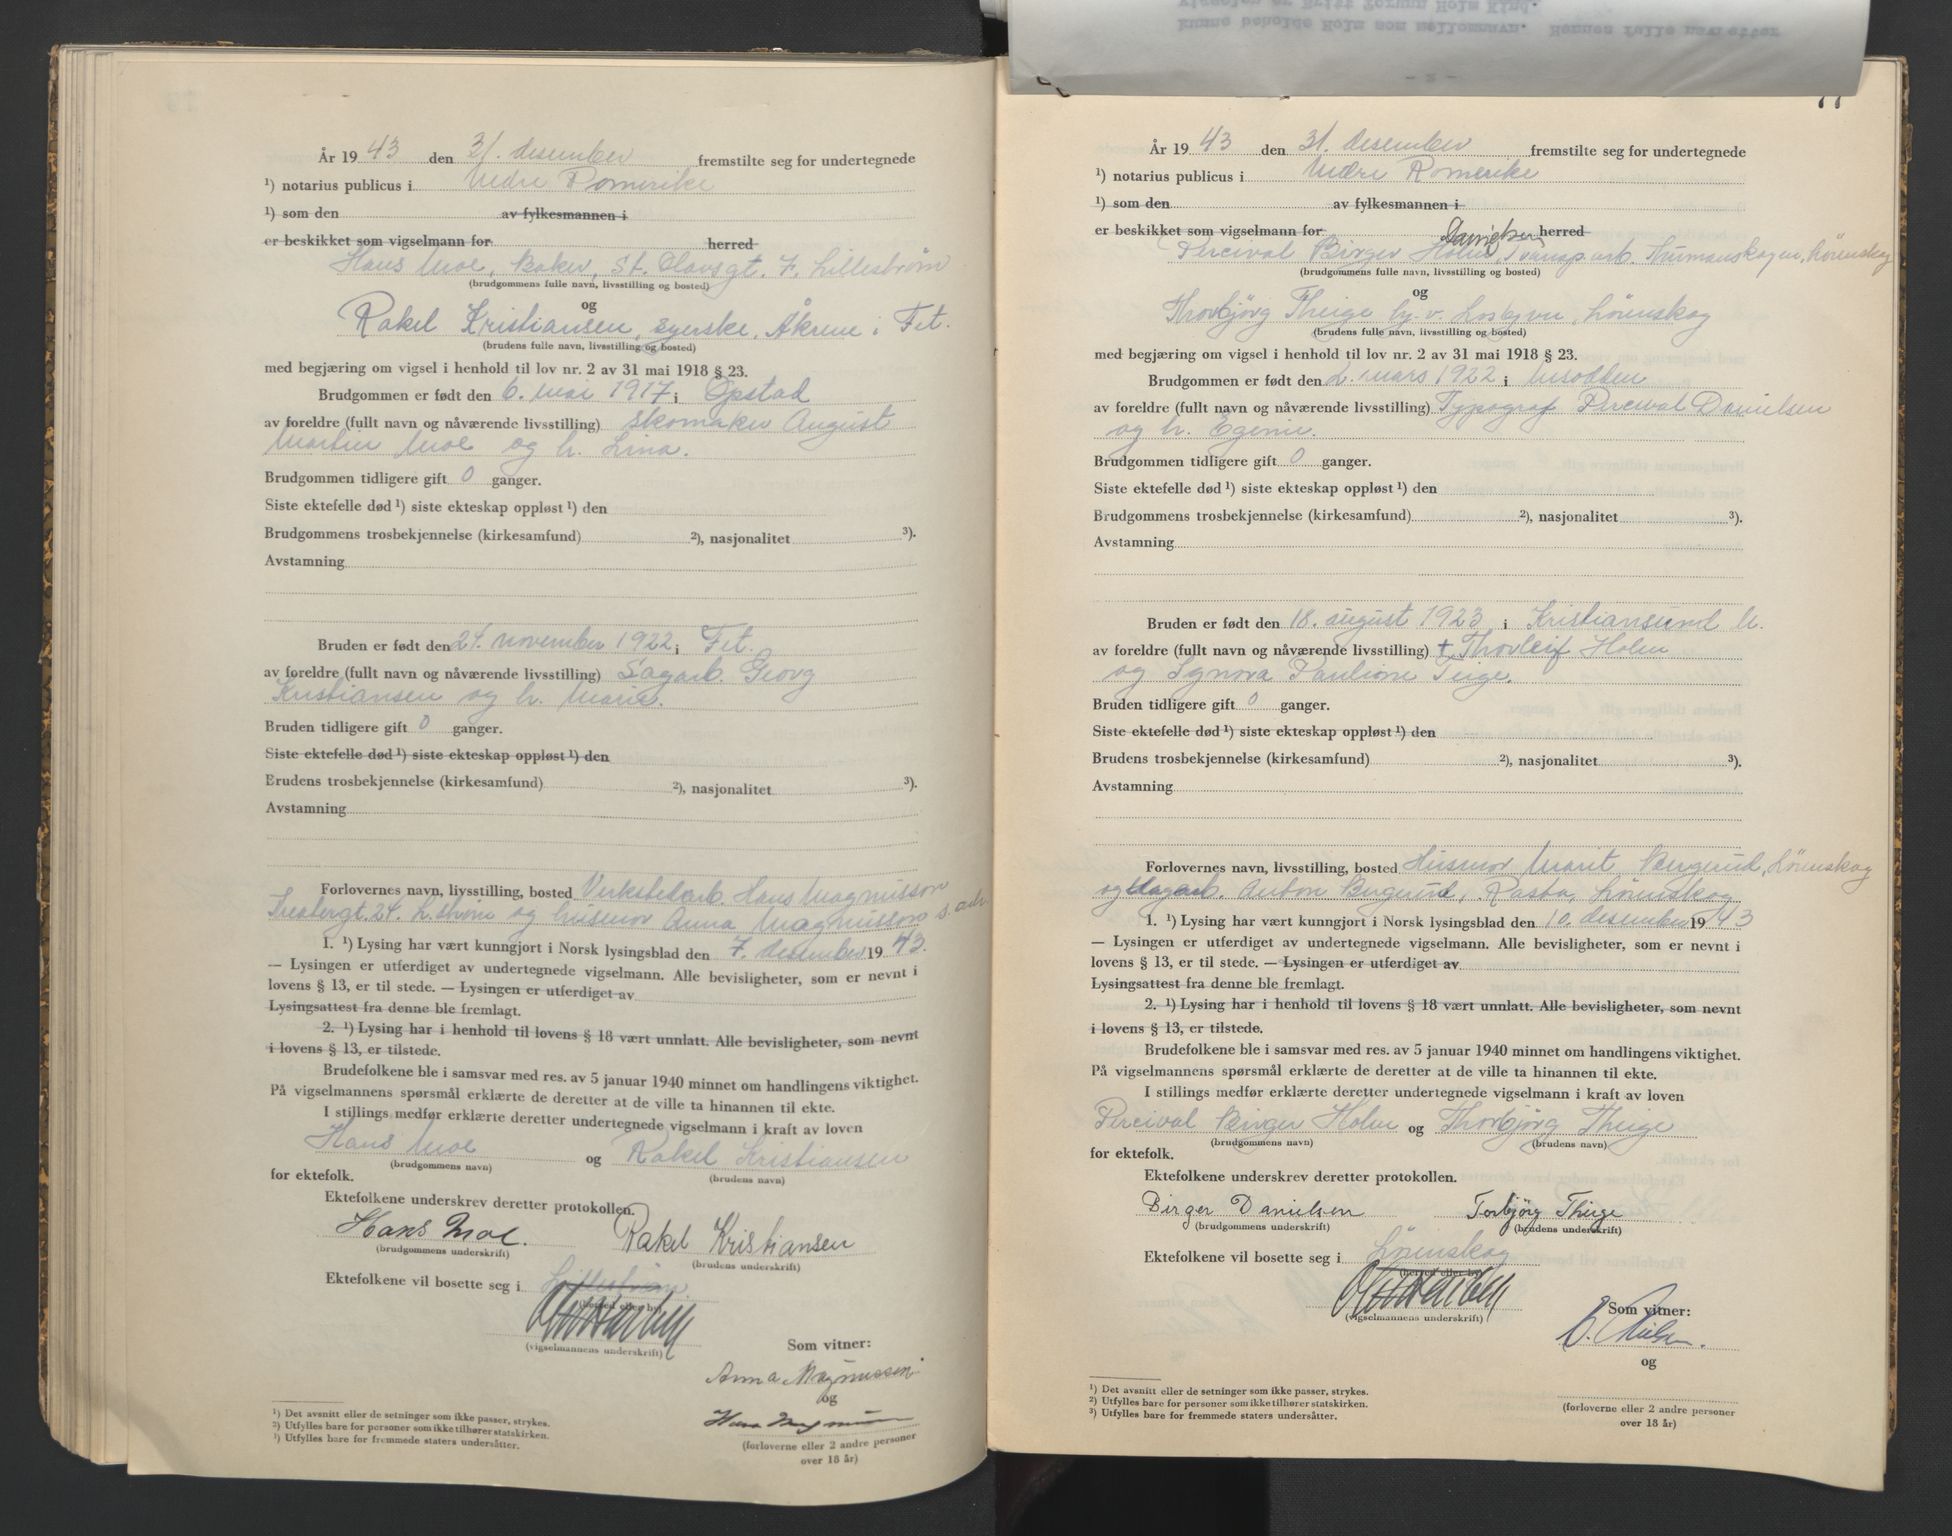 År 19 43 den 31. desember fremstilte seg for undertegnede
¹) notarius publicus i Nedre Romerike
¹) som den av fylkesmannen i
er beskikket som vigselmann for herred
Hans Moe, Baker, St. Olavsgt. 7, Lillestrøm
(brudgommens fulle navn, livsstilling og bosted)
og
Rakel Kristiansen, syerske, Åkrene i Fet.
(brudens fulle navn, livsstilling og bosted)
med begjæring om vigsel i henhold til lov nr. 2 av 31 mai 1918 § 23.
Brudgommen er født den 6. mai 1917 i Opstad
av foreldre (fullt navn og nåværende livsstilling) skomaker August
Martin Moe og h. Lina.
Brudgommen tidligere gift 0 ganger.
Siste ektefelle død ¹) siste ekteskap oppløst ¹) den
Brudgommens trosbekjennelse (kirkesamfund) ²), nasjonalitet ³).
Avstamning
Bruden er født den 24. november 1922 i Fet.
av foreldre (fullt navn og nåværende livsstilling) Sagarb. Georg
Kristiansen og h. Marie.
Bruden tidligere gift 0 ganger.
Siste ektefelle død ¹) siste ekteskap oppløst ¹) den
Erudens trosbekjennelse (kirkesamfund) ²), nasjonalitet ³).
Avstamning
Forlovernes navn, livsstilling, bosted Verkstedarb. Hans Magnusson
24. L.strøm og husmor Anna Magnusson s. adr.
1. ¹) Lysing har vært kunngjort i Norsk lysingsblad den 7. desember 19 43.
— Lysingen er utferdiget av undertegnede vigselmann. Alle bevisligheter, som er nevnt i
lovens § 13, er til stede. — Lysingen er utferdiget av
Lysingsattest fra denne ble fremlagt.
2. ¹) Lysing har i henhold til lovens § 18 vært unnlatt. Alle bevisligheter, som nevnt
i lovens § 13, er tilstede.
Brudefolkene ble i samsvar med res. av 5 januar 1940 minnet om handlingens viktighet.
På vigselmannens spørsmål erklærte de deretter at de ville ta hinannen til ekte.
I stillings medfør erklærte deretter undertegnede vigselmann i kraft av loven
Hans Moe og Rakel Kristiansen
(brudgommens navn) (brudens navn)
for ektefolk.
Ektefolkene underskrev deretter protokollen.
Hans Moe. Rakel Kristiansen
(brudgommens underskrift) (brudens underskrift)
Ektefolkene vil bosette seg i Lillestrøm.
(herred eller by)
(vigselmannens underskrift)
Som vitner:
Anna Magnussen
og
Hans Magnusson
(forloverne eller 2 andre personer
over 18 år)
¹) Det avsnitt eller de setninger som ikke passer, strykes.
²) Utfylles bare for personer som ikke tilhører statskirken.
³) Utfylles bare for fremmede staters undersåtter.
kunne beholde Holm som mellomnavn. Hennes fulle navn etter
- 2 -
77
År 19 43 den 31. desember fremstilte seg for undertegnede
¹) notarius publicus i Nedre Romerike
¹) som den av fylkesmannen i
er beskikket som vigselmann for herred
Danielsen
Percival Birger Holm, Transp.arb. Thurmanskogen, Lørenskog
(brudgommens fulle navn, livsstilling og bosted)
og
Thorbjörg Theige hj.v. Losbyvn, Lørenskog
(brudens fulle navn, livsstilling og bosted)
med begjæring om vigsel i henhold til lov nr. 2 av 31 mai 1918 § 23.
Brudgommen er født den 2. mars 1922 i Nesodden
av foreldre (fullt navn og nåværende livsstilling) Typograf Percival Danielsen
og h. Egenie.
Brudgommen tidligere gift 0 ganger.
Siste ektefelle død ¹) siste ekteskap oppløst ¹) den
Brudgommens trosbekjennelse (kirkesamfund) ²), nasjonalitet ³).
Avstamning
Bruden er født den 18. august 1923 i Kristiansund N.
av foreldre (fullt navn og nåværende livsstilling) + Thorleif Holm
og Signora Pauline Teige.
Bruden tidligere gift 0 ganger.
Siste ektefelle død ¹) siste ekteskap oppløst ¹) den
Brudens trosbekjennelse (kirkesamfund) ²), nasjonalitet ³).
Avstamning
Forlovernes navn, livsstilling, bosted Husmor Marit Bergerud, Lørenskog
og Anton Bergerud, Rasta, Lørenskog
1. ¹) Lysing har vært kunngjort i Norsk lysingsblad den 10. desember 19 43
— Lysingen er utferdiget av undertegnede vigselmann. Alle bevisligheter, som er nevnt i
lovens § 13, er til stede. — Lysingen er utferdiget av
Lysingsattest fra denne ble fremlagt.
2. ¹) Lysing har i henhold til lovens § 18 vært unnlatt. Alle bevisligheter, som nevnt
i lovens § 13, er tilstede.
Brudefolkene ble i samsvar med res. av 5 januar 1940 minnet om handlingens viktighet.
På vigselmannens spørsmål erklærte de deretter at de ville ta hinannen til ekte.
I stillings medfør erklærte deretter undertegnede vigselmann i kraft av loven
Percival Birger Holm og Thorbjörg Theige
(brudgommens navn) (brudens navn)
for ektefolk.
Ektefolkene underskrev deretter protokollen.
Birger Danielsen Torbjörg Theige
(brudgommens underskrift) (brudens underskrift)
Ektefolkene vil bosette seg i Lørenskog
(herred eller by)
(vigselmannens underskrift)
Som vitner:
og
(forloverne eller 2 andre personer
over 18 år)
¹) Det avsnitt eller de setninger som ikke passer, strykes.
²) Utfylles bare for personer som ikke tilhører statskirken.
³) Utfylles bare for fremmede staters undersåtter.